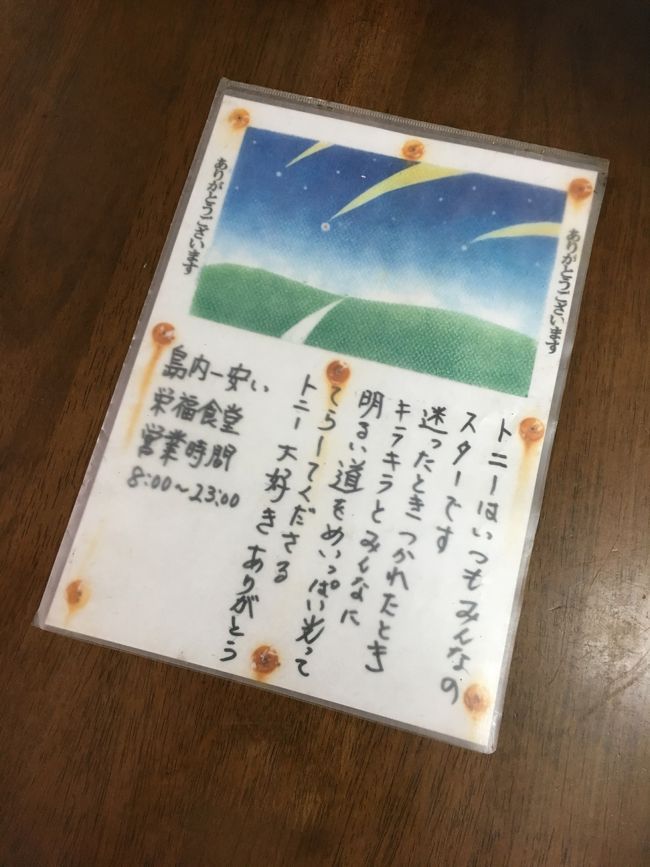 ありがとうございます
ありがとうございます
トニーはいつもみんなの
スターです
迷ったときつかれたとき
キラキラとみんなに
明るい道をめいっぱい光って
てらしてくださる
トニー大好きありがとう
島内一安い
栄福食堂
営業時間
8:00〜23:00